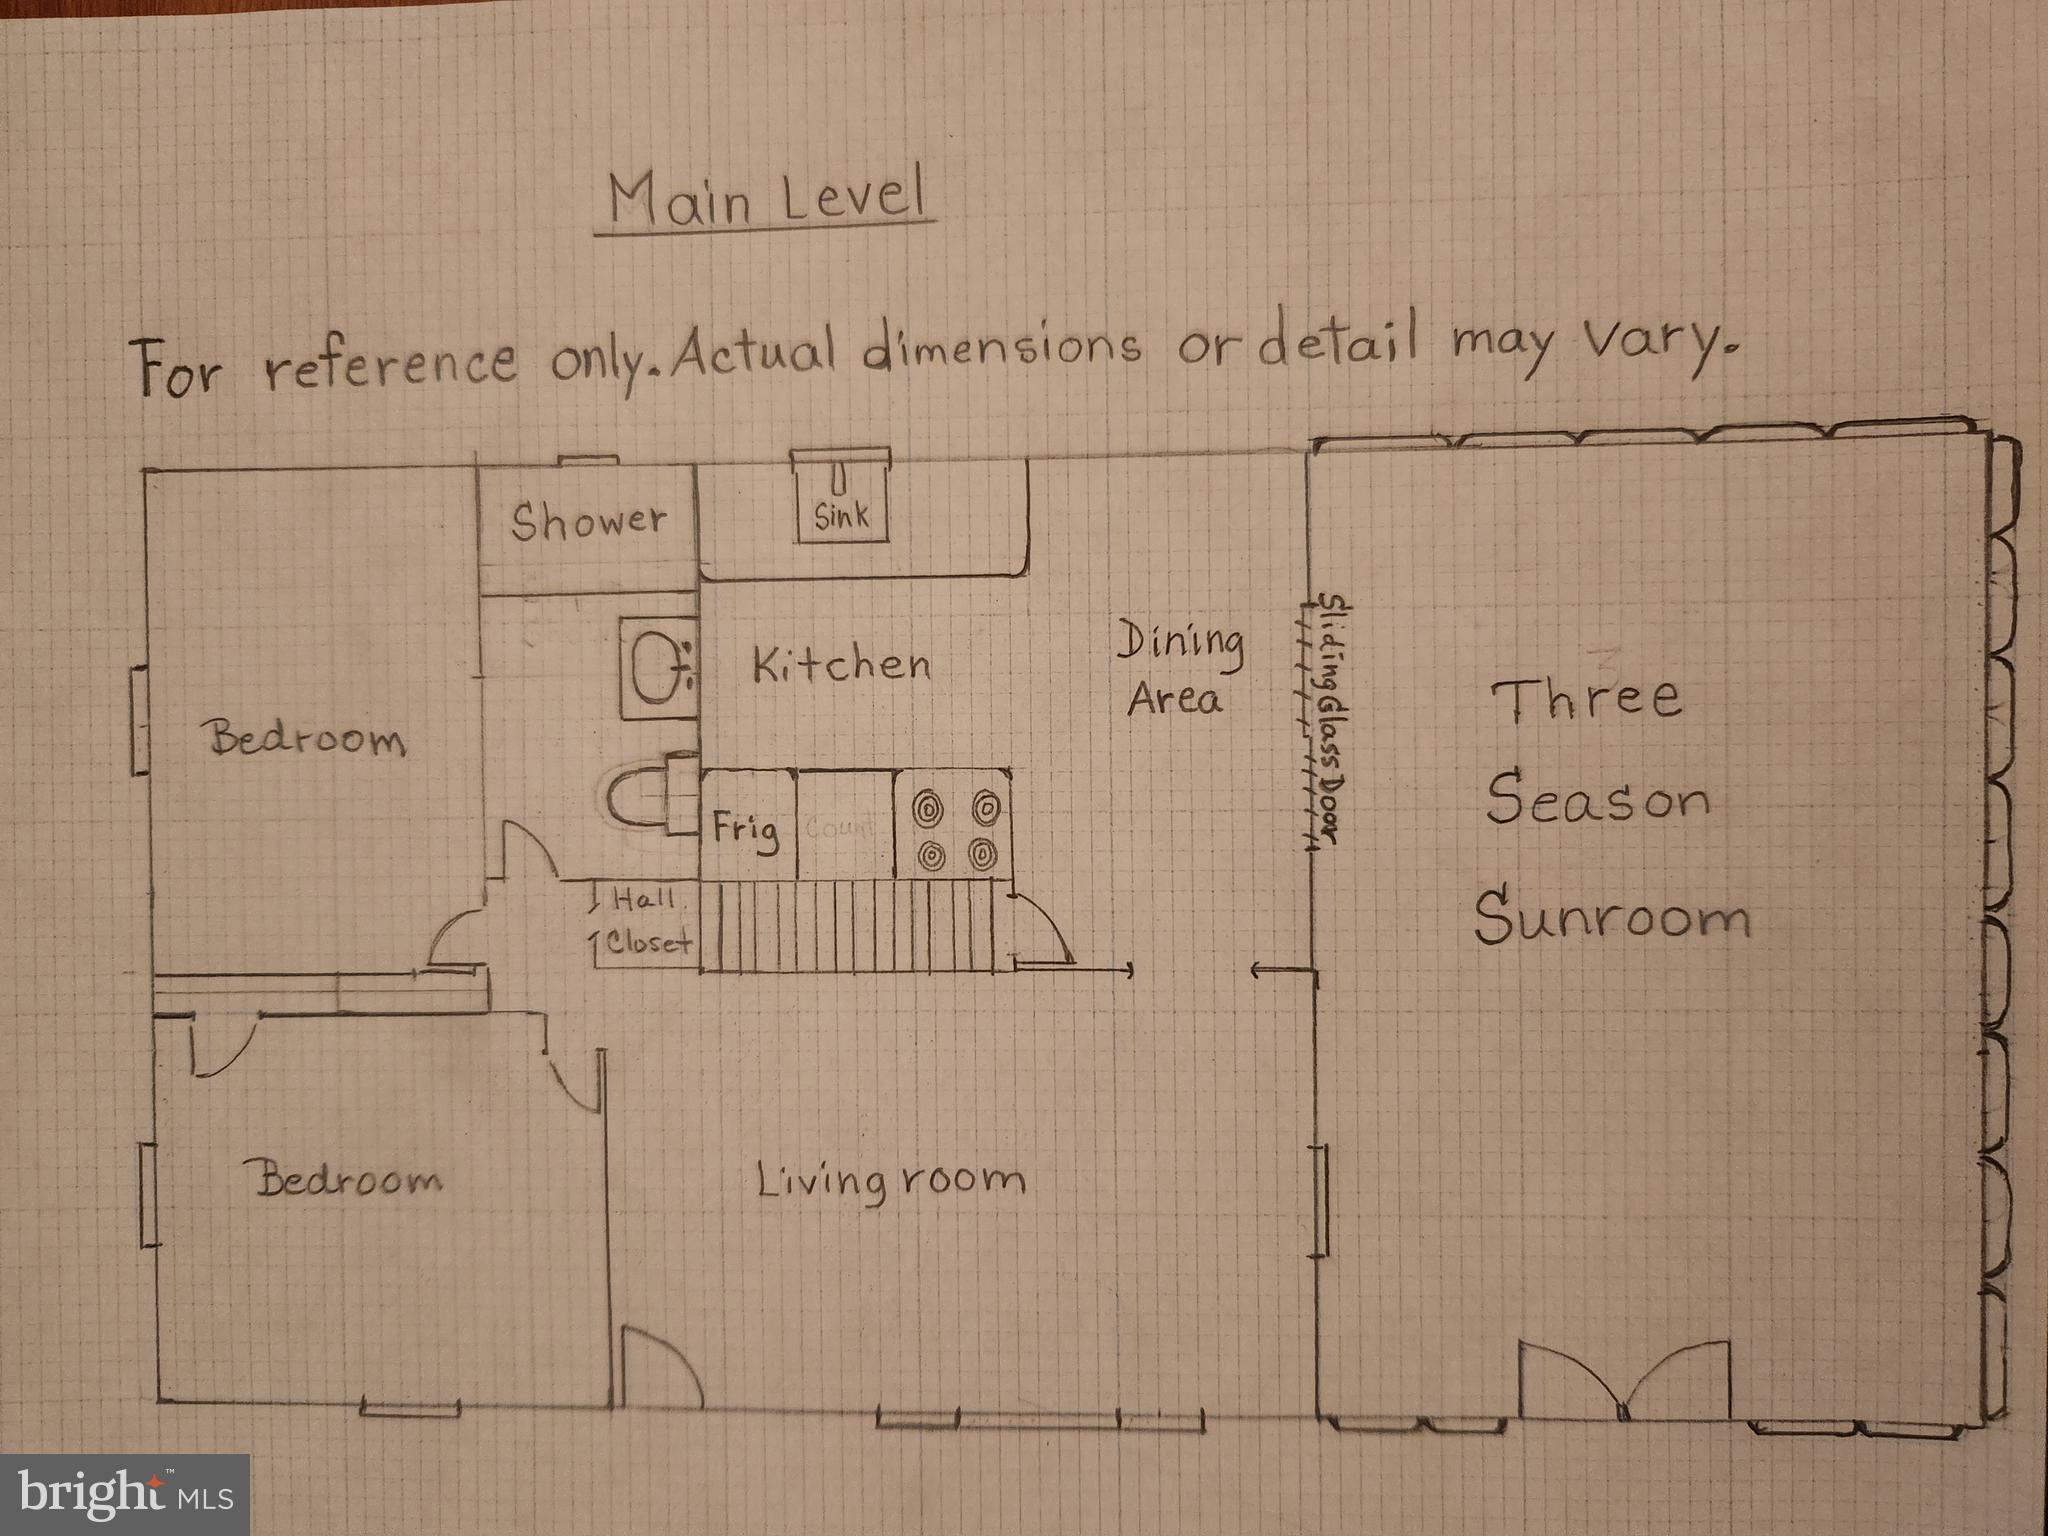 Main Level
For reference only. Actual dimensions or detail may vary.
Shower
Sink
Kitchen
Dining
Area
Sliding Glass Door
Three
Season
Sunroom
Bedroom
Frig
Count
Hall
Closet
Bedroom
Living room
bright™ MLS